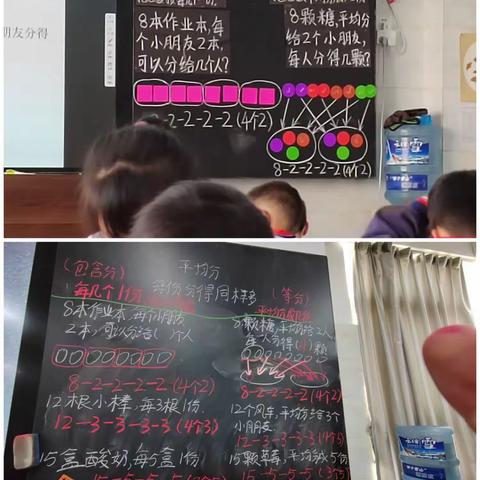 朋友分得
8本作业本,每
个小朋友2本,
可以分给几个人?
8颗糖,平均分
给2个小朋友,
每人分得几颗?
-2-2-2-2(4个2)
8-2-2-2-2(4个2)
(包含分)
平均分
每份分得同样多
每几个1份
(等分)
8本作业本,每个小朋友
2本,可以分给( )个人
8-2-2-2-2(4个2)
12根小棒,每3根1份.
12-3-3-3-3(4个3)
15盒酸奶,每5盒1份
15-5-5-5(3个5)
8颗糖,平均给2人
每人分得( )颗
8-2-2-2-2(4个2)
12个风车,平均给3个
小朋友.
12-3-3-3-3(4个3)
15颗草莓,平均成5份
15-5-5-5(3个5)